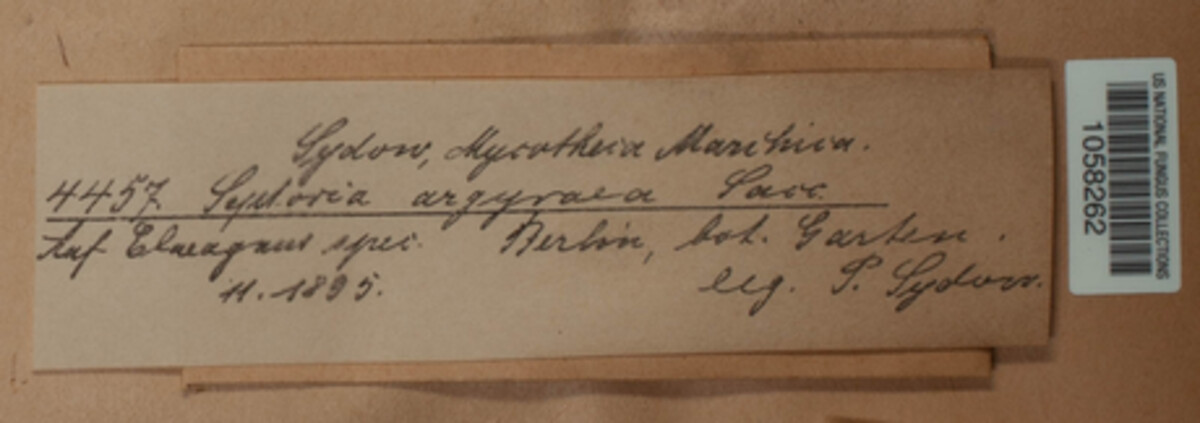 Sydow, Mycotheca Marchica.
4457. Septoria argyraea Sacc.
Auf Elaeagnus spec. Berlin, bot. Garten.
11. 1895. leg. P. Sydow.
US NATIONAL FUNGUS COLLECTIONS
1058262